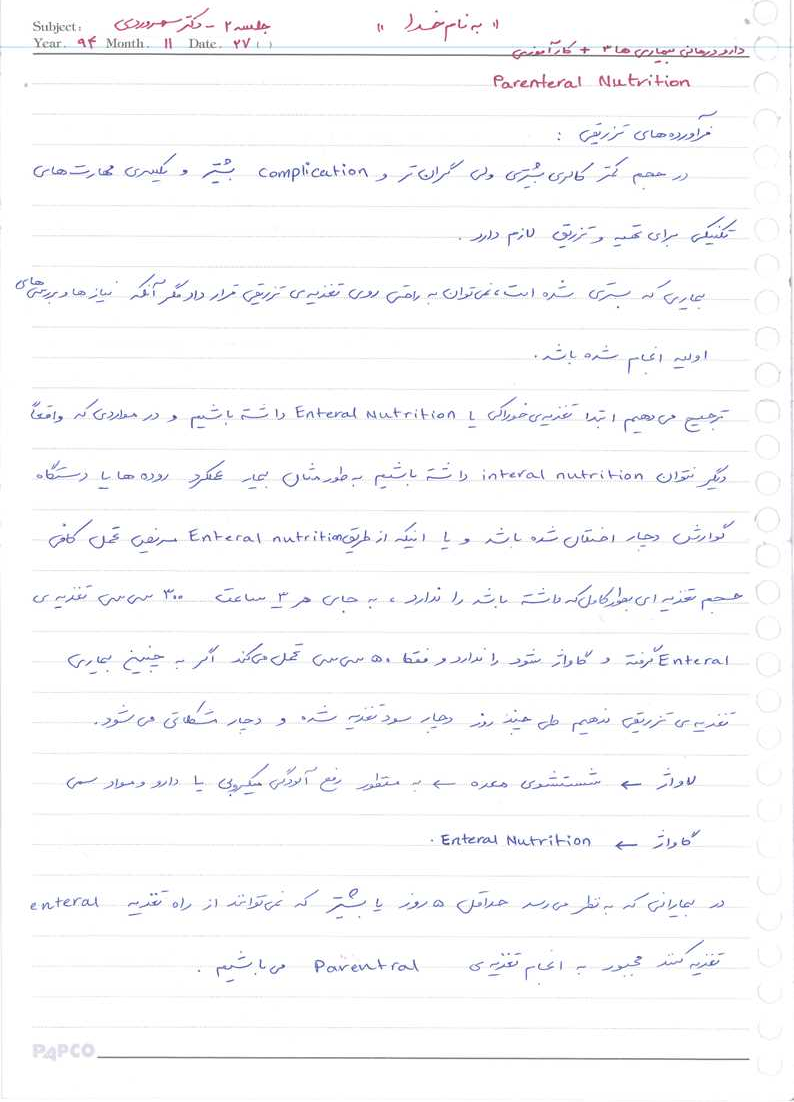 "به نام خدا"
Subject: جلسه ۲ - دکتر سهروردی
Year. ۹۴ Month. ۱۱ Date. ۲۷ ( )
دارو درمانی بیماری ها ۳ + کارآموزی
Parenteral Nutrition
فرآورده‌های تزریقی :
در حجم کمتر کالری بیشتری ولی گران‌تر و complication بیشتر و یکسری مهارت‌های
تکنیکی برای تهیه و تزریق لازم دارد .
بیماری که بستری شده است، نمی‌توان به راحتی روی تغذیه‌ی تزریقی قرار داد مگر آنکه نیازها و بررسی‌های
اولیه انجام شده باشد.
ترجیح می‌دهیم ابتدا تغذیه‌ی خوراکی یا Enteral Nutrition داشته باشیم و در مواردی که واقعاً
دیگر نتوان interal nutrition داشته باشیم به طور مثال بیمار عملکرد روده ها یا دستگاه
گوارش دچار اختلال شده باشد و یا اینکه از طریق Enteral nutrition مریض تحمل کافی
حجم تغذیه ای بطور کامل که داشته باشد را ندارد ، به جای هر ۳ ساعت ۳۰۰ سی سی تغذیه‌ی
Enteral گرفته و گاواژ شود را ندارد و فقط ۵۰ سی سی تحمل می‌کند اگر به چنین بیماری
تغذیه‌ی تزریقی ندهیم طی چند روز دچار سوءتغذیه شده و دچار مشکلاتی می‌شود.
لاواژ ← شستشوی معده ← به منظور رفع آلودگی میکروبی یا دارو و مواد سمی
گاواژ ← Enteral Nutrition .
در بیمارانی که به نظر می‌رسد حداقل ۵ روز یا بیشتر که نمی‌توانند از راه تغذیه enteral
تغذیه کنند مجبور به انجام تغذیه‌ی Parentral می‌باشیم .
PAPCO